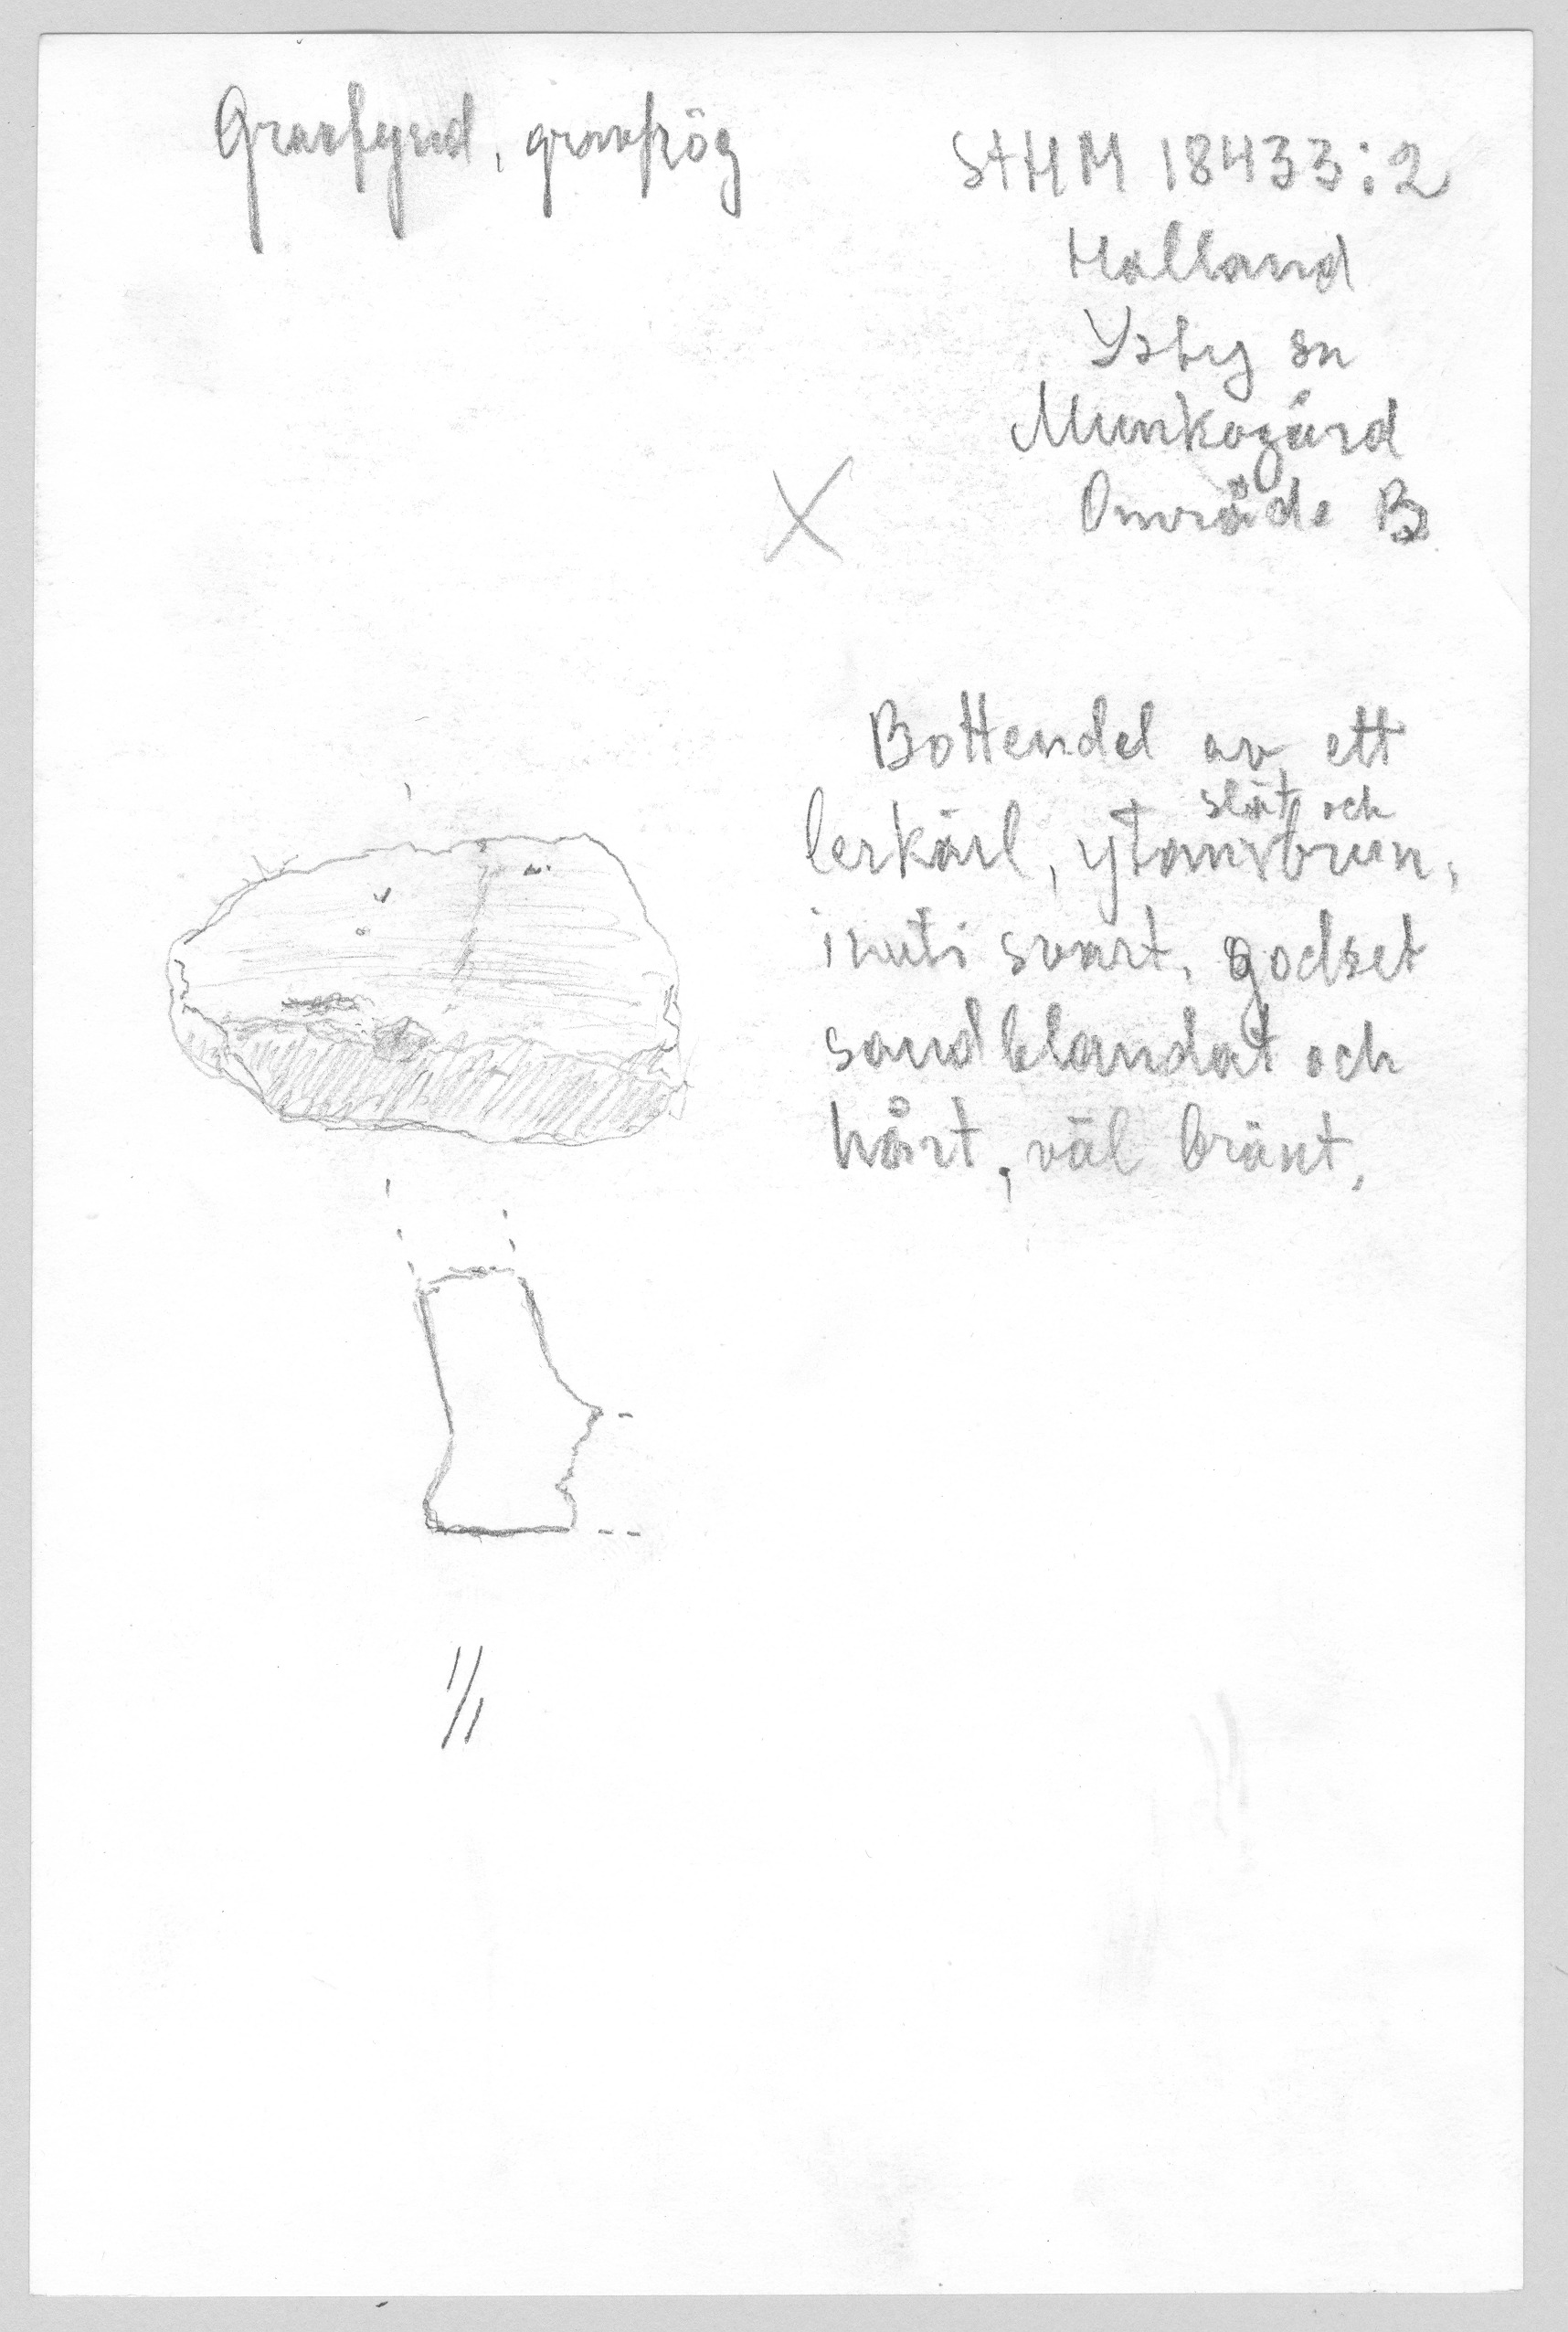 Gravfynd, gravhög
StHM 18433:2
Halland
Ysby sn
Munkagård
Område B
Bottendel av ett
slät och
lerkärl, ytan brun,
inuti svart, godset
sandblandat och
hårt, väl bränt,
1/1